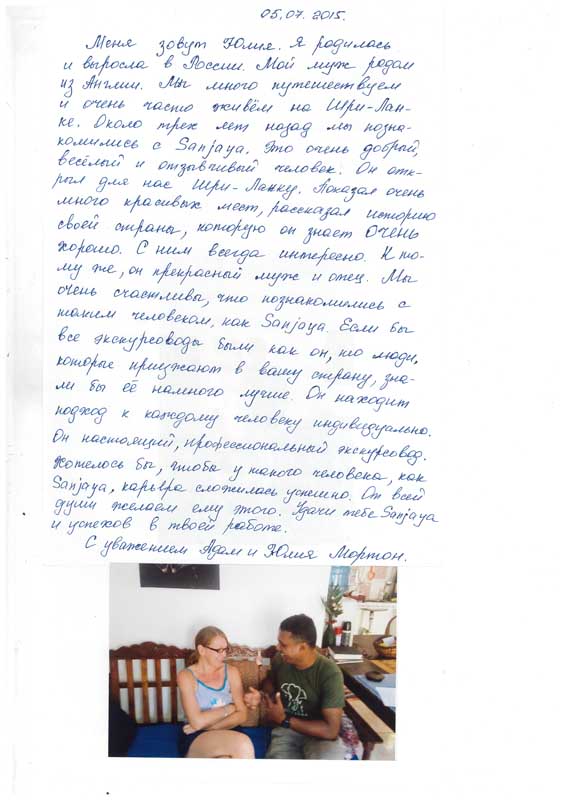 05.07.2015.
Меня зовут Юлия. Я родилась
и выросла в России. Мой муж родом
из Англии. Мы много путешествуем
и очень часто живём на Шри-Лан-
ке. Около трех лет назад мы позна-
комились с Sanjaya. Это очень добрый,
весёлый и отзывчивый человек. Он отк-
рыл для нас Шри-Ланку. Показал очень
много красивых мест, рассказал историю
своей страны, которую он знает очень
хорошо. С ним всегда интересно. К то-
му же, он прекрасный муж и отец. Мы
очень счастливы, что познакомились с
таким человеком, как Sanjaya. Если бы
все экскурсоводы были как он, то люди,
которые приезжают в вашу страну, зна-
ли бы её намного лучше. Он находит
подход к каждому человеку индивидуально.
Он настоящий, профессиональный экскурсовод.
Хотелось бы, чтобы у такого человека, как
Sanjaya, карьера сложилась успешно. От всей
души желаем ему этого. Удачи тебе Sanjaya
и успехов в твоей работе.
С уважением Адам и Юлия Мортон.